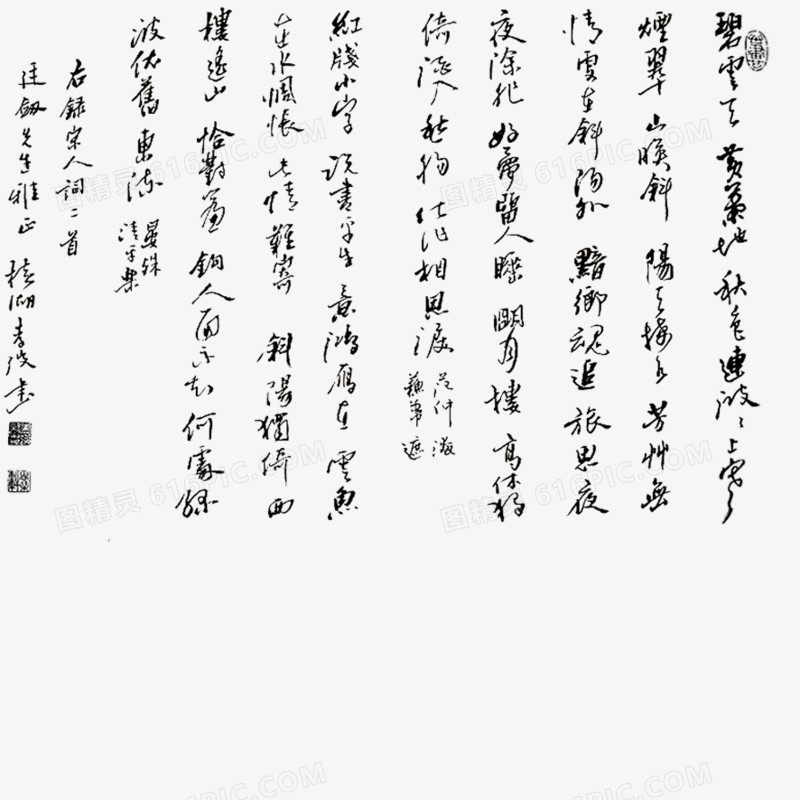 碧雲天黃葉地秋色連波波上寒
煙翠山暎斜陽天接水芳艸無
情更在斜陽外黯鄉魂追旅思夜
夜除非好夢留人睡明月樓高休獨
倚酒入愁腸化作相思淚
范仲淹
蘇幕遮
紅牋小字說盡平生意鴻雁在雲魚
在水惆悵此情難寄斜陽獨倚西
樓遙山恰對簾鉤人面不知何處綠
波依舊東流
晏殊
清平樂
右錄宋人詞二首
廷劍先生雅正桂湖李波書
图精灵 616PIC.COM